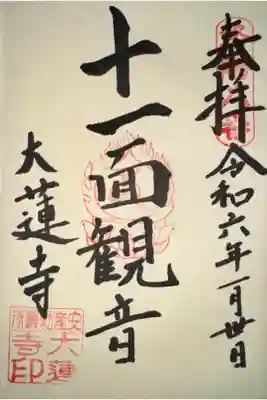 奉拝 令和六年一月丗日
十一面観音
大蓮寺
安産祈願所
大蓮寺印